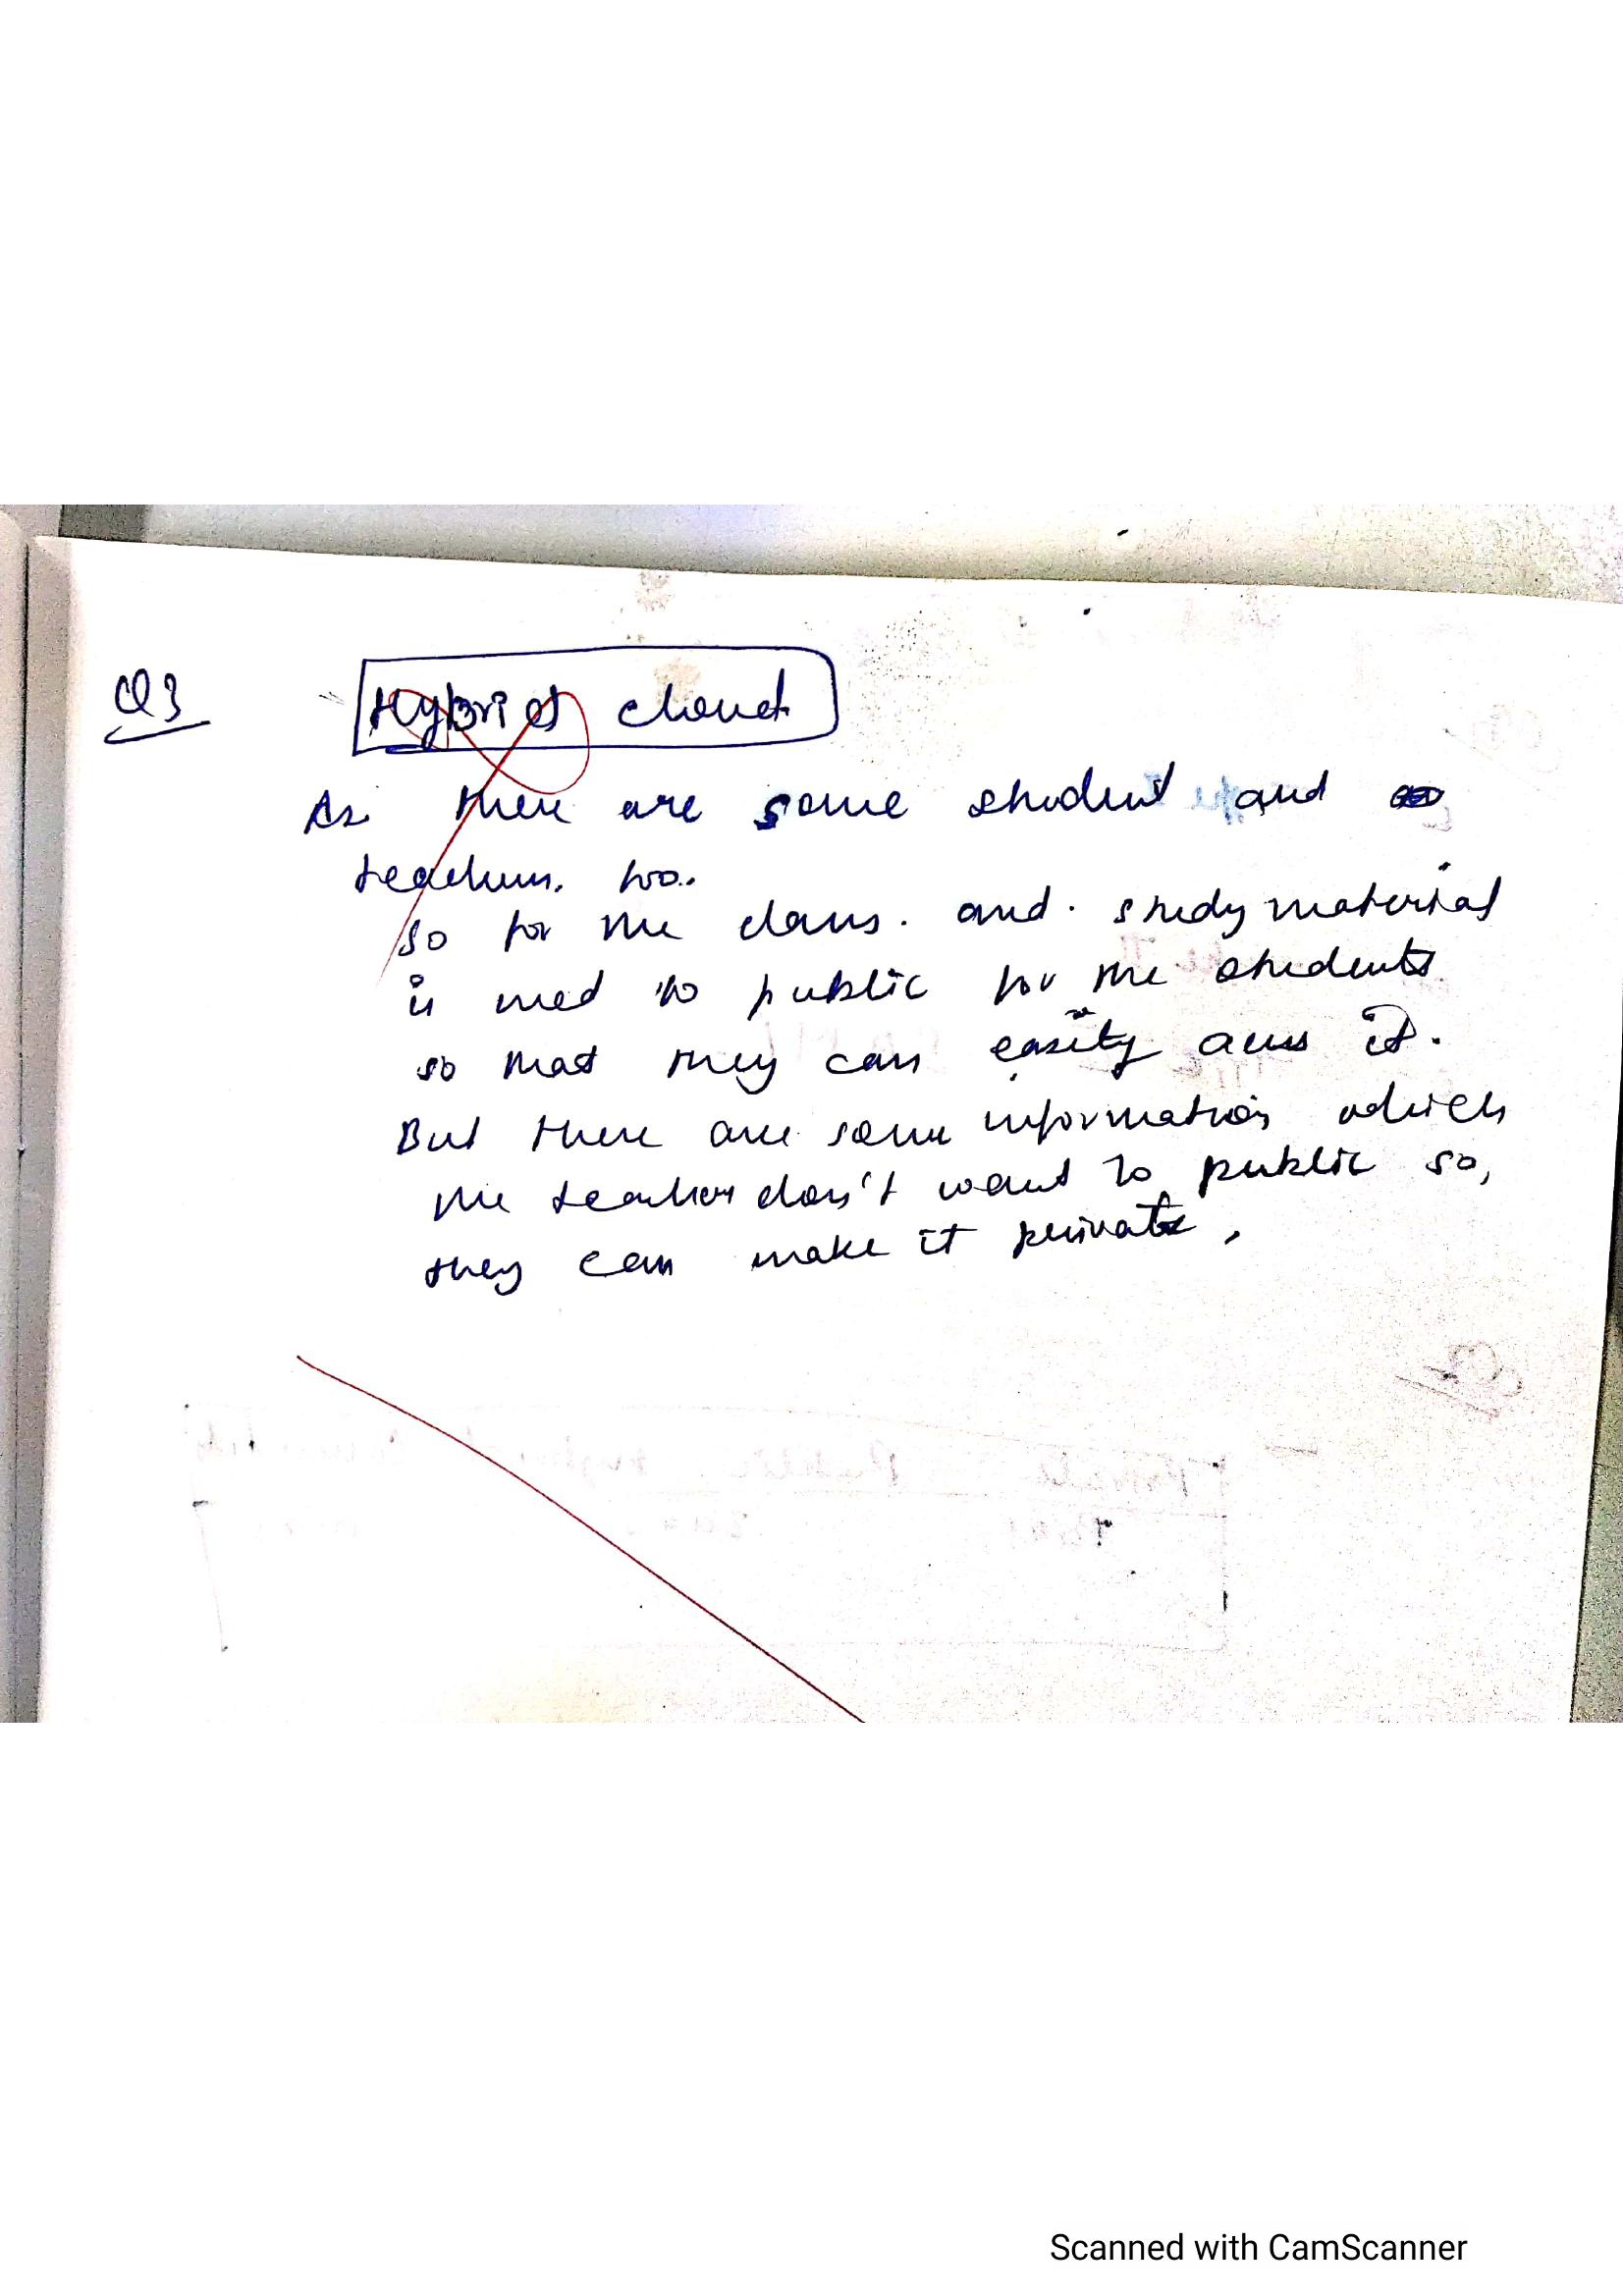 Q3
Hybrid cloud
As there are some student and
teachers. too.
so for the class. and. study material
is used to public for the students
so that they can easily acess it.
But there are some information which
the teacher don't want to public so,
they can make it private,
Scanned with CamScanner